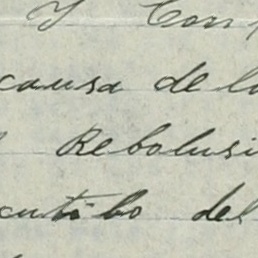 y Con
causa de la
Rebolusi
cutibo del